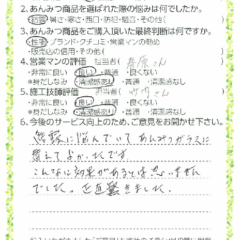 2.あんみつ商品を選ばれた際の悩みは何でしたか。
防犯・暑さ・寒さ・西日・防犯・騒音・その他(　)
3.あんみつ商品をご購入頂いた最終判断は何ですか。
性能・ブランド・クチコミ・営業マンの勧め
・販売店の信用・その他(　)
4.営業マンの評価　担当者(　さん　)
・非常に良い・良い・普通・良くない
*身だしなみ　清潔感あり・普通・清潔感なし
5.施工技師評価　担当者(　さん　)
・非常に良い・良い・普通・良くない
*身だしなみ　清潔感あり・普通・清潔感なし
6.今後のサービス向上のため、ご意見をお聞かせ下さい。
結露に悩んでいて あんみつガラスに
替えてよかったです
こんなに効果があるとは思いません
でした。